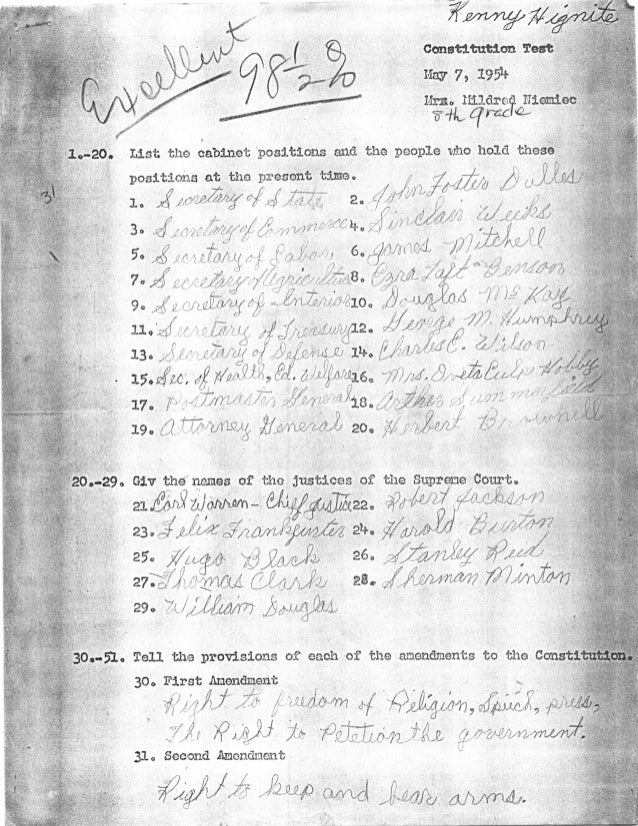 Kenny Hignite
Excellent
98 1/2 %
Constitution Test
May 7, 1954
Mrs. Mildred Niemiec
8th grade
1.-20. List the cabinet positions and the people who hold these
positions at the present time.
31
1. Secretary of State 2. John Foster Dulles
3. Secretary of Commerce 4. Sinclair Weeks
5. Secretary of Labor 6. James Mitchell
7. Secretary of Agriculture 8. Ezra Taft Benson
9. Secretary of Interior 10. Douglas McKay
11. Secretary of Treasury 12. George M. Humphrey
13. Secretary of Defense 14. Charles E. Wilson
15. Sec. of Health, Ed. Welfare 16. Mrs. Oveta Culp Hobby
17. Postmaster General 18. Arther Summerfield
19. Attorney General 20. Herbert Brownell
20.-29. Giv the names of the justices of the Supreme Court.
21. Earl Warren - Chief Justice 22. Robert Jackson
23. Felix Frankfurter 24. Harold Burton
25. Hugo Black 26. Stanley Reed
27. Thomas Clark 28. Sherman Minton
29. William Douglas
30.-51. Tell the provisions of each of the amendments to the Constitution.
30. First Amendment
Right to freedom of Religion, Speech, press,
The Right to Petetion the government.
31. Second Amendment
Right to keep and bear arms.